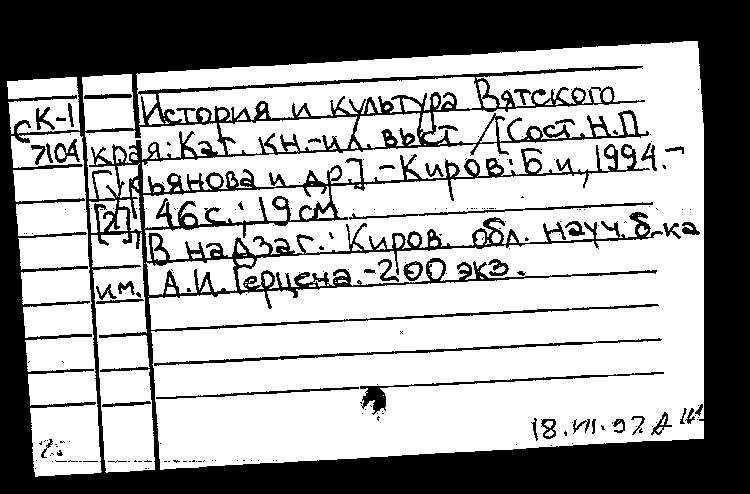 сК-1 История и культура Вятского
7104 края: Кат. кн.-ил. выст. / [Сост. Н.П.
Гурьянова и др.]. - Киров: Б.и., 1994.-
[2], 46 с.; 19 см.
В надзаг.: Киров. обл. науч. б-ка
им. А.И. Герцена. - 200 экз.
18.VII.97.